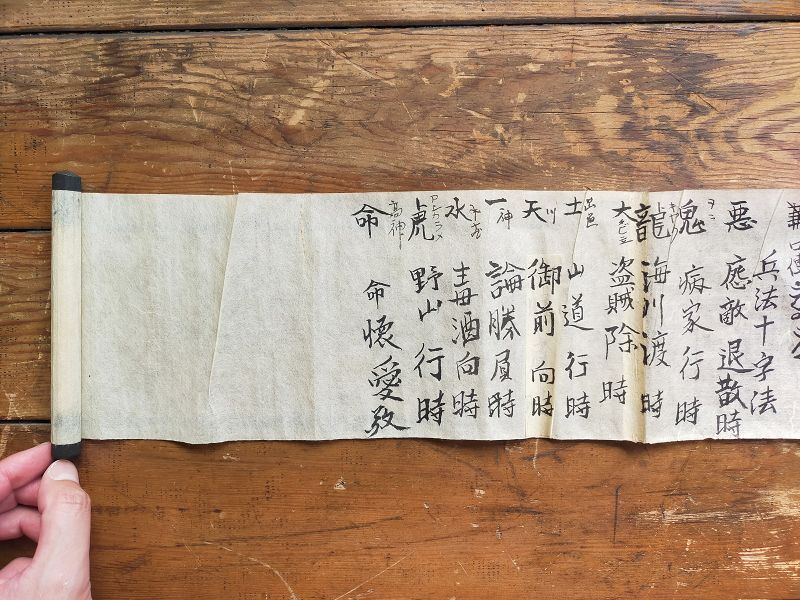 兵法十字法
悪 應敵退散時
鬼 病家行時
龍 海川渡時
大 盗賊除時
土 山道行時
天 御前向時
一 神 論勝負時
水 毒酒向時
虎 野山行時
命 高神 命懐愛敬